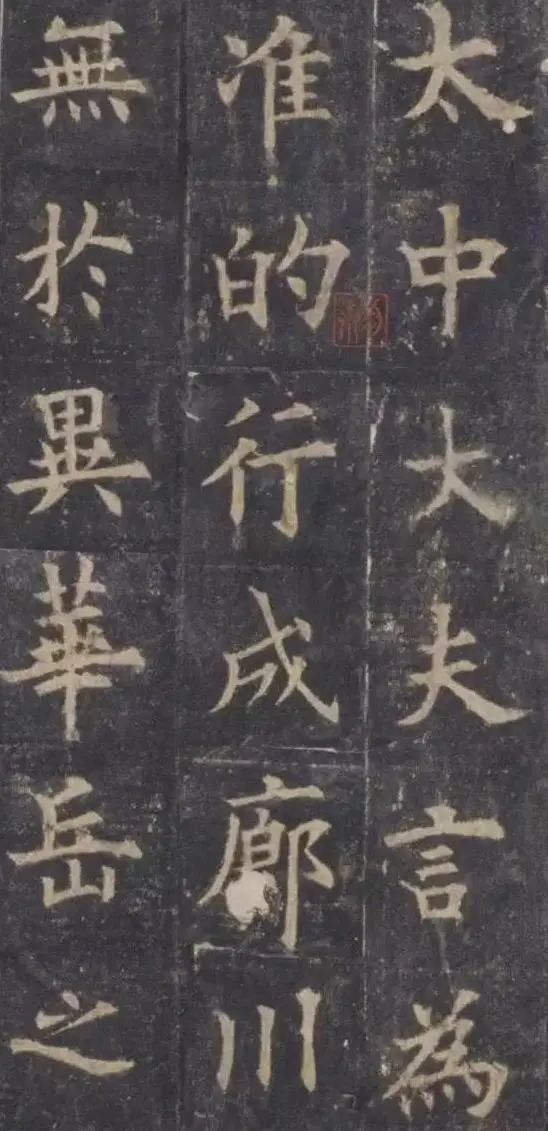 太中大夫言為
准的行成廊川
無於異華岳之